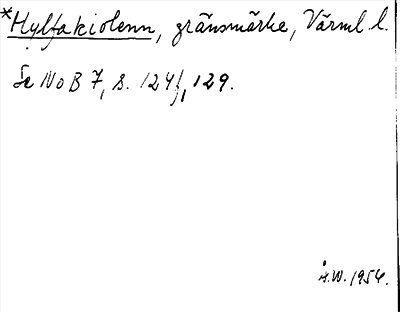 *Hylfakiolenn, gränsmärke, Värml. l.
Se NoB 7, s. 124f, 129.
Å.W. 1954.